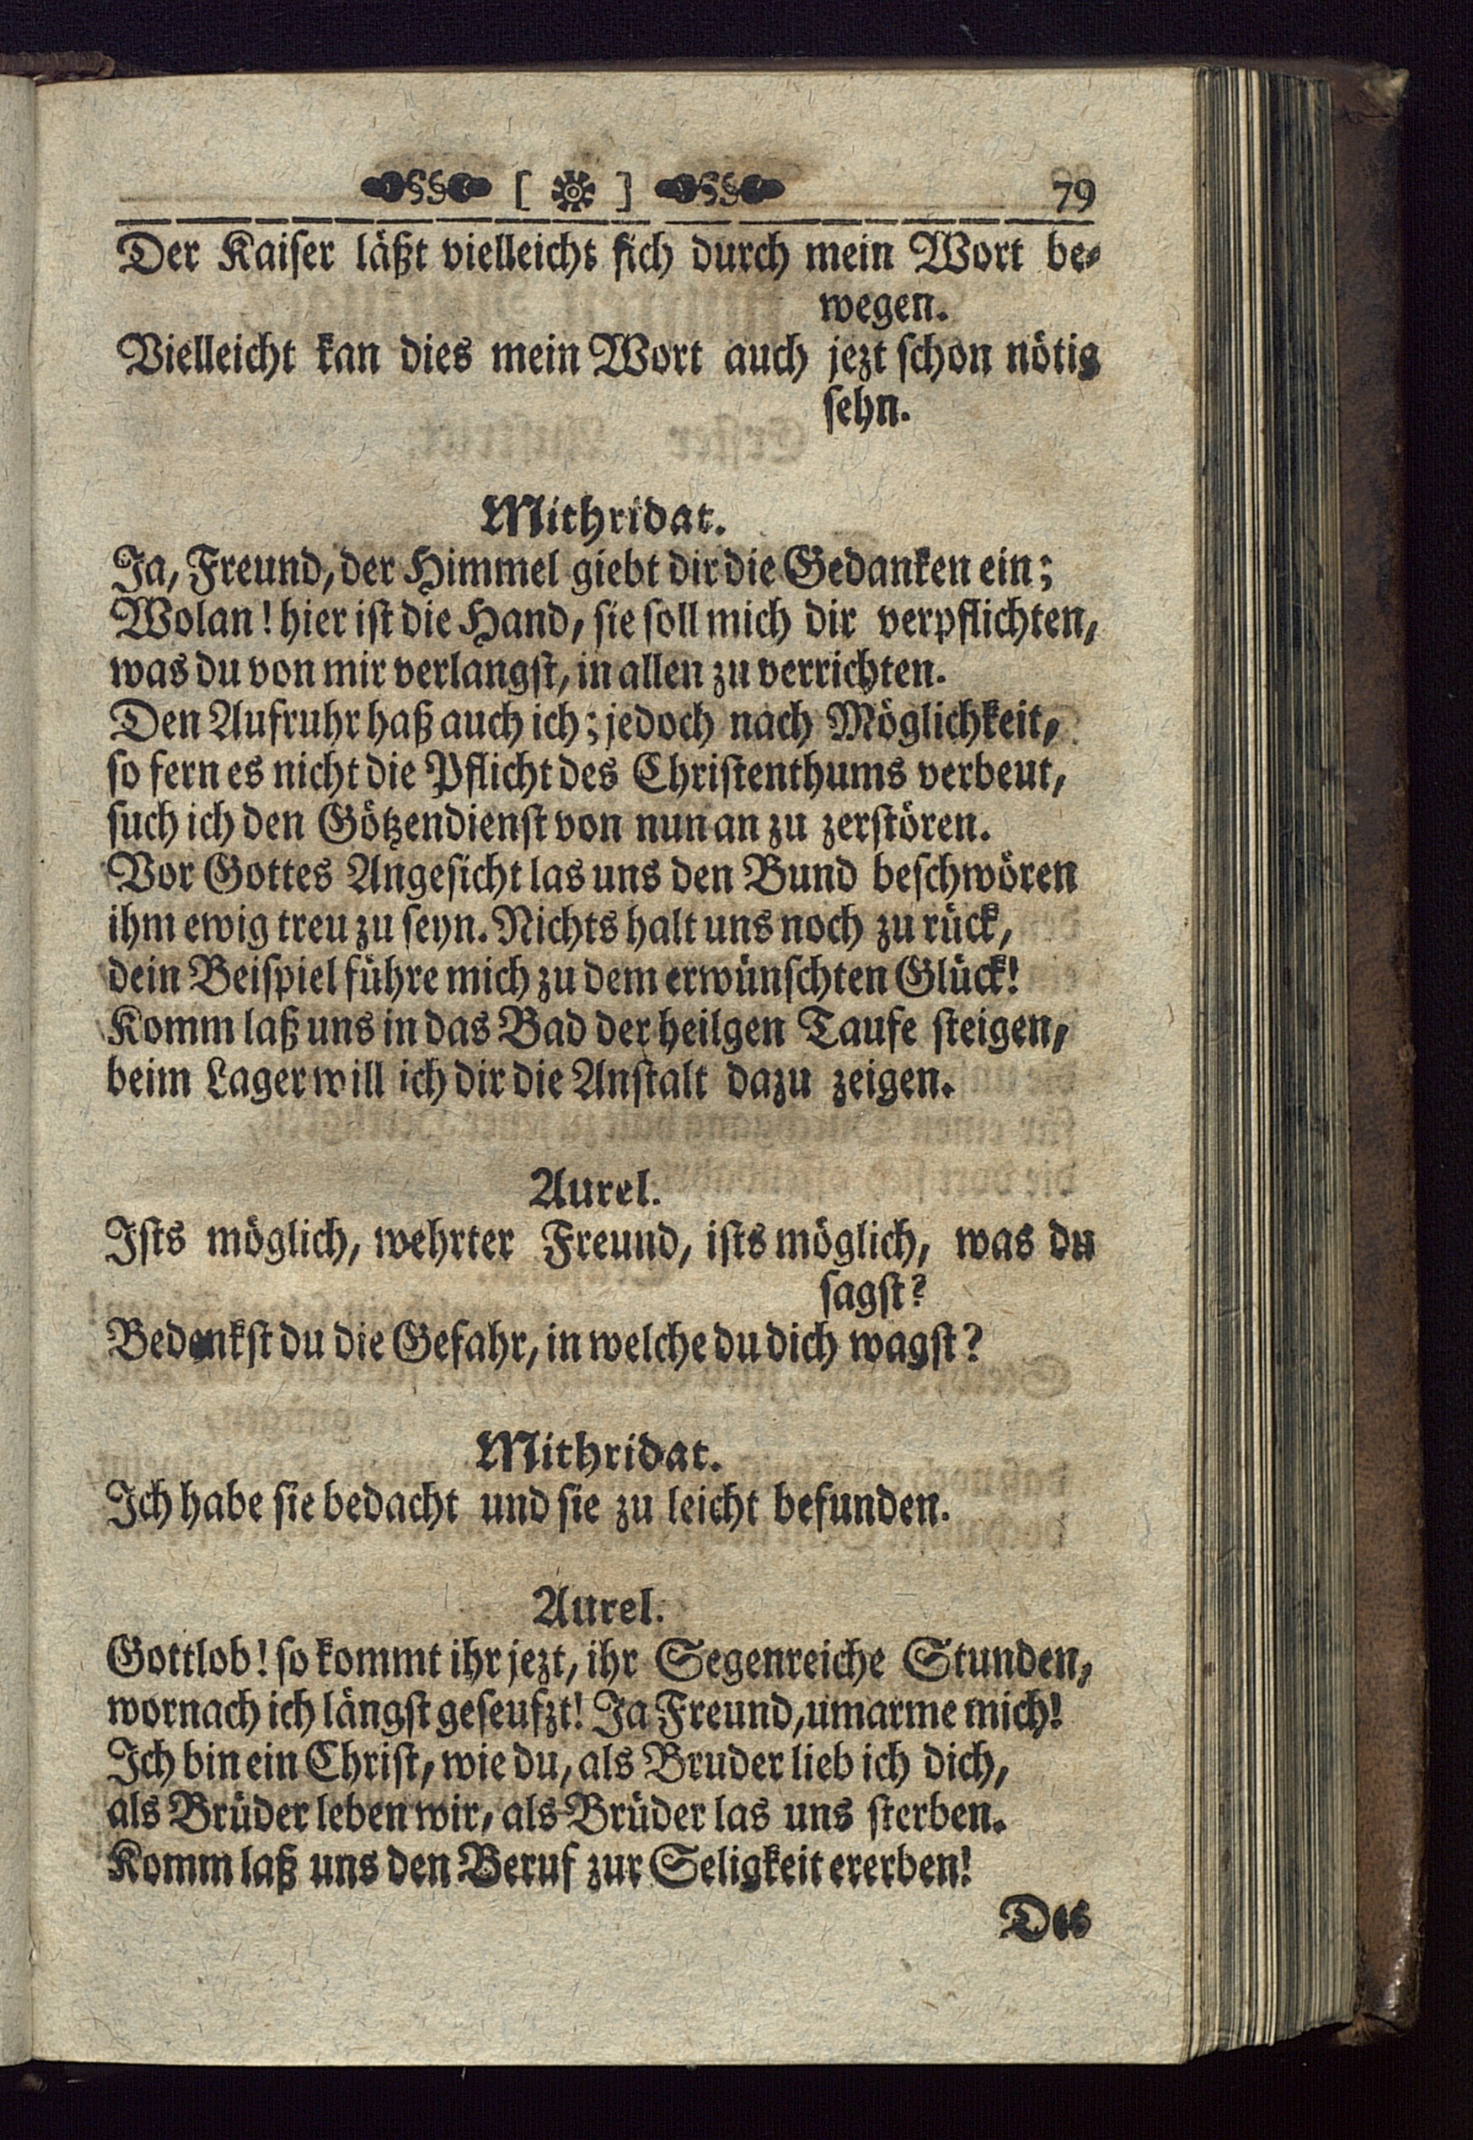 [ ] 79
Der Kaiser läßt vielleicht sich durch mein Wort be-
wegen.
Vielleicht kan dies mein Wort auch jezt schon nötig
sehn.
Mithridat.
Ja, Freund, der Himmel giebt dir die Gedanken ein;
Wolan! hier ist die Hand, sie soll mich dir verpflichten,
was du von mir verlangst, in allen zu verrichten.
Den Aufruhr haß auch ich; jedoch nach Möglichkeit,
so fern es nicht die Pflicht des Christenthums verbeut,
such ich den Götzendienst von nun an zu zerstören.
Vor Gottes Angesicht las uns den Bund beschwören
ihm ewig treu zu seyn. Nichts halt uns noch zu rück,
dein Beispiel führe mich zu dem erwünschten Glück!
Komm laß uns in das Bad der heilgen Taufe steigen,
beim Lager will ich dir die Anstalt dazu zeigen.
Aurel.
Ists möglich, wehrter Freund, ists möglich, was du
sagst?
Bedenkst du die Gefahr, in welche du dich wagst?
Mithridat.
Ich habe sie bedacht und sie zu leicht befunden.
Aurel.
Gottlob! so kommt ihr jezt, ihr Segenreiche Stunden,
wornach ich längst geseufzt! Ja Freund, umarme mich!
Ich bin ein Christ, wie du, als Bruder lieb ich dich,
als Brüder leben wir, als Brüder las uns sterben.
Komm laß uns den Beruf zur Seligkeit ererben!
Des